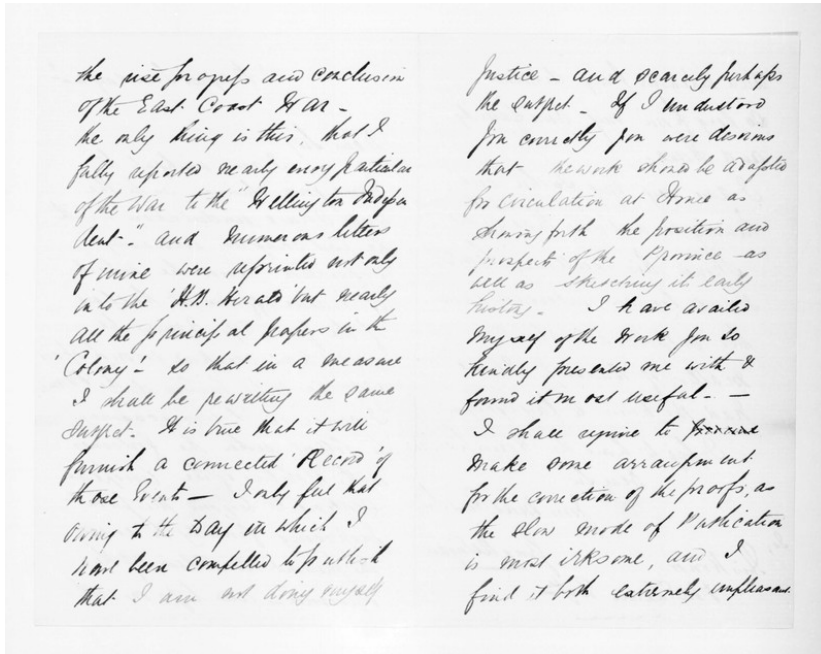 the rise progress and conclusion
of the East Coast War -
the only thing is this, that I
fully reported nearly every particular
of the War to the "Wellington Indepen
dent". and numerous letters
of mine were reprinted not only
into the 'H.B. Herald' but nearly
all the principal papers in the
'Colony'- so that in a measure
I shall be rewriting the same
subject. It is true that it will
furnish a connected 'Record' of
those Events - I only feel that
owing to the way in which I
have been compelled to publish
that I am not doing myself
Justice - and scarcely perhaps
the subject. If I understood
you correctly you were desirous
that the work should be adapted
for circulation at Home as
showing forth the position and
prospects of the Province as
well as sketching its early
history. I have availed
myself of the work you so
kindly presented me with &
found it most useful - -
I shall require to
make some arrangement
for the correction of the proofs, as
the slow mode of Publication
is most irksome, and I
find it both extremely unpleasant